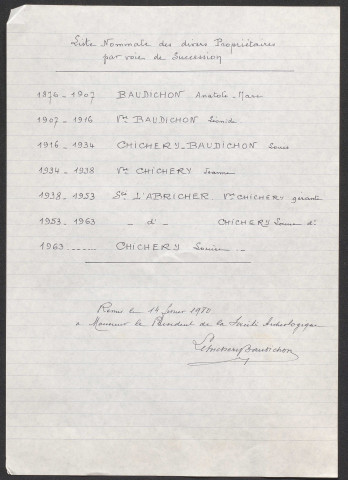 Liste Nommate des divers Propriétaires
par voie de Succession
1874 - 1907 BAUDICHON Anatole-Marc
1907 - 1916 Vve BAUDICHON
1916 - 1934 CHICHERY-BAUDICHON Louis
1934 - 1938 Vve CHICHERY Jeanne
1938 - 1953 Sté L'ABRICHER Vve CHICHERY gerante
1953 - 1963 - d° - CHICHERY d°
1963 ....... CHICHERY
le 14 1980
a Monsieur le President de la Société Archeologique